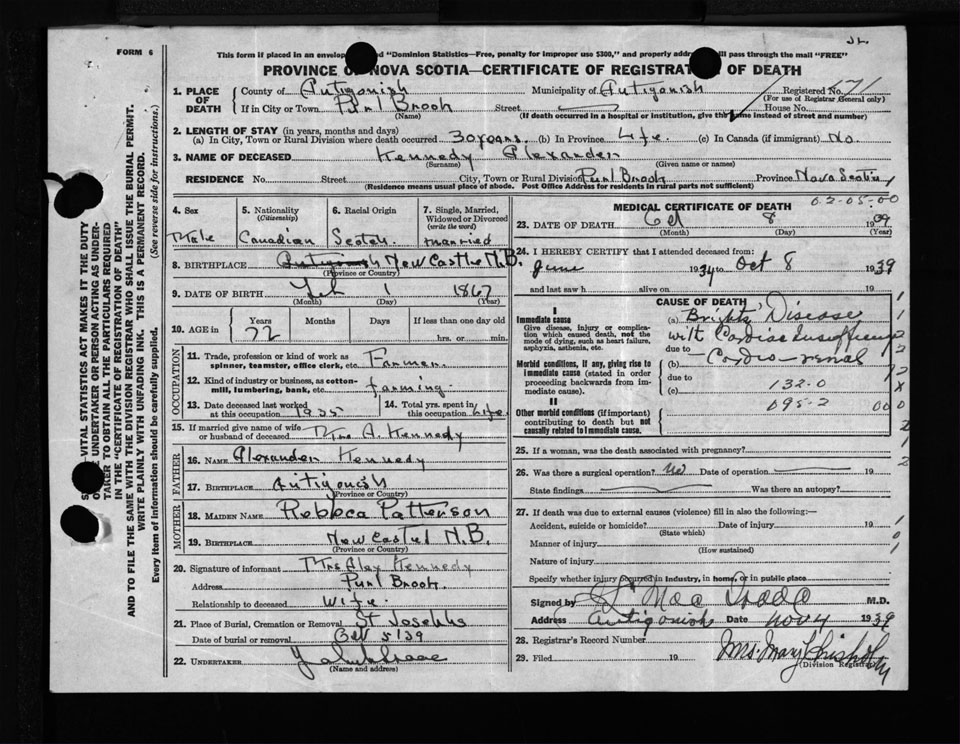 FORM 6
This form if placed in an envelop "Dominion Statistics—Free, penalty for improper use $300," and properly addre will pass through the mail "FREE"
PROVINCE OF NOVA SCOTIA—CERTIFICATE OF REGISTRAT OF DEATH
1. PLACE OF DEATH County of Antigonish Municipality of Antigonish Registered No. 171
(For use of Registrar General only)
If in City or Town Purl Brook Street House No.
(Name) (If death occurred in a hospital or institution, give the name instead of street and number)
2. LENGTH OF STAY (in years, months and days)
(a) In City, Town or Rural Division where death occurred 30 years. (b) In Province Life. (c) In Canada (if immigrant) No.
3. NAME OF DECEASED Kennedy Alexander
(Surname) (Given name or names)
RESIDENCE No. Street City, Town or Rural Division Purl Brook Province Nova Scotia
(Residence means usual place of abode. Post Office Address for residents in rural parts not sufficient)
4. Sex 5. Nationality (Citizenship) 6. Racial Origin 7. Single, Married, Widowed or Divorced (write the word)
Male Canadian Scotch. married
8. BIRTHPLACE Antigonish New Castle N.B.
(Province or Country)
9. DATE OF BIRTH Feb 1 1867
(Month) (Day) (Year)
10. AGE in Years Months Days If less than one day old
72 hrs. or min.
OCCUPATION
11. Trade, profession or kind of work as spinner, teamster, office clerk, etc. Farmer.
12. Kind of industry or business, as cotton-mill, lumbering, bank, etc. farming.
13. Date deceased last worked at this occupation 1935 14. Total yrs. spent in this occupation Life.
15. If married give name of wife or husband of deceased Mrs A. Kennedy
FATHER
16. NAME Alexander Kennedy
17. BIRTHPLACE Antigonish
(Province or Country)
MOTHER
18. MAIDEN NAME Rebbca Patterson
19. BIRTHPLACE New Castel N.B.
(Province or Country)
20. Signature of informant Mrs Alex Kennedy
Address Purl Brook
Relationship to deceased Wife.
21. Place of Burial, Cremation or Removal St Josephs
Date of burial or removal
22. UNDERTAKER
(Name and address)
MEDICAL CERTIFICATE OF DEATH 02-05-00
23. DATE OF DEATH Oct 8 1939
(Month) (Day) (Year)
24. I HEREBY CERTIFY that I attended deceased from:
June 1934 to Oct 8 1939
and last saw h alive on 19
I
Immediate cause
Give disease, injury or complication which caused death, not the mode of dying, such as heart failure, asphyxia, asthenia, etc.
Morbid conditions, if any, giving rise to immediate cause (stated in order proceeding backwards from immediate cause).
II
Other morbid conditions (if important) contributing to death but not causally related to immediate cause.
CAUSE OF DEATH
(a) Brights Disease
with Cardiac Insufficiency
due to
(b) Cardio-renal
due to
(c) 132.0
095-2
25. If a woman, was the death associated with pregnancy?
26. Was there a surgical operation? No Date of operation 19
State findings Was there an autopsy?
27. If death was due to external causes (violence) fill in also the following:—
Accident, suicide or homicide? Date of injury 19
(State which)
Manner of injury
(How sustained)
Nature of injury
Specify whether injury occurred in industry, in home, or in public place
Signed by M.D.
Address Antigonish Date Nov 4 1939
28. Registrar's Record Number
29. Filed 19 Mrs. Mary Chisholm
(Division Registrar)
VITAL STATISTICS ACT MAKES IT THE DUTY
UNDERTAKER OR PERSON ACTING AS UNDER-
TAKER TO OBTAIN ALL THE PARTICULARS REQUIRED
IN THE "CERTIFICATE OF REGISTRATION OF DEATH"
AND TO FILE THE SAME WITH THE DIVISION REGISTRAR WHO SHALL ISSUE THE BURIAL PERMIT.
WRITE PLAINLY WITH UNFADING INK. THIS IS A PERMANENT RECORD.
Every item of information should be carefully supplied. (See reverse side for instructions.)